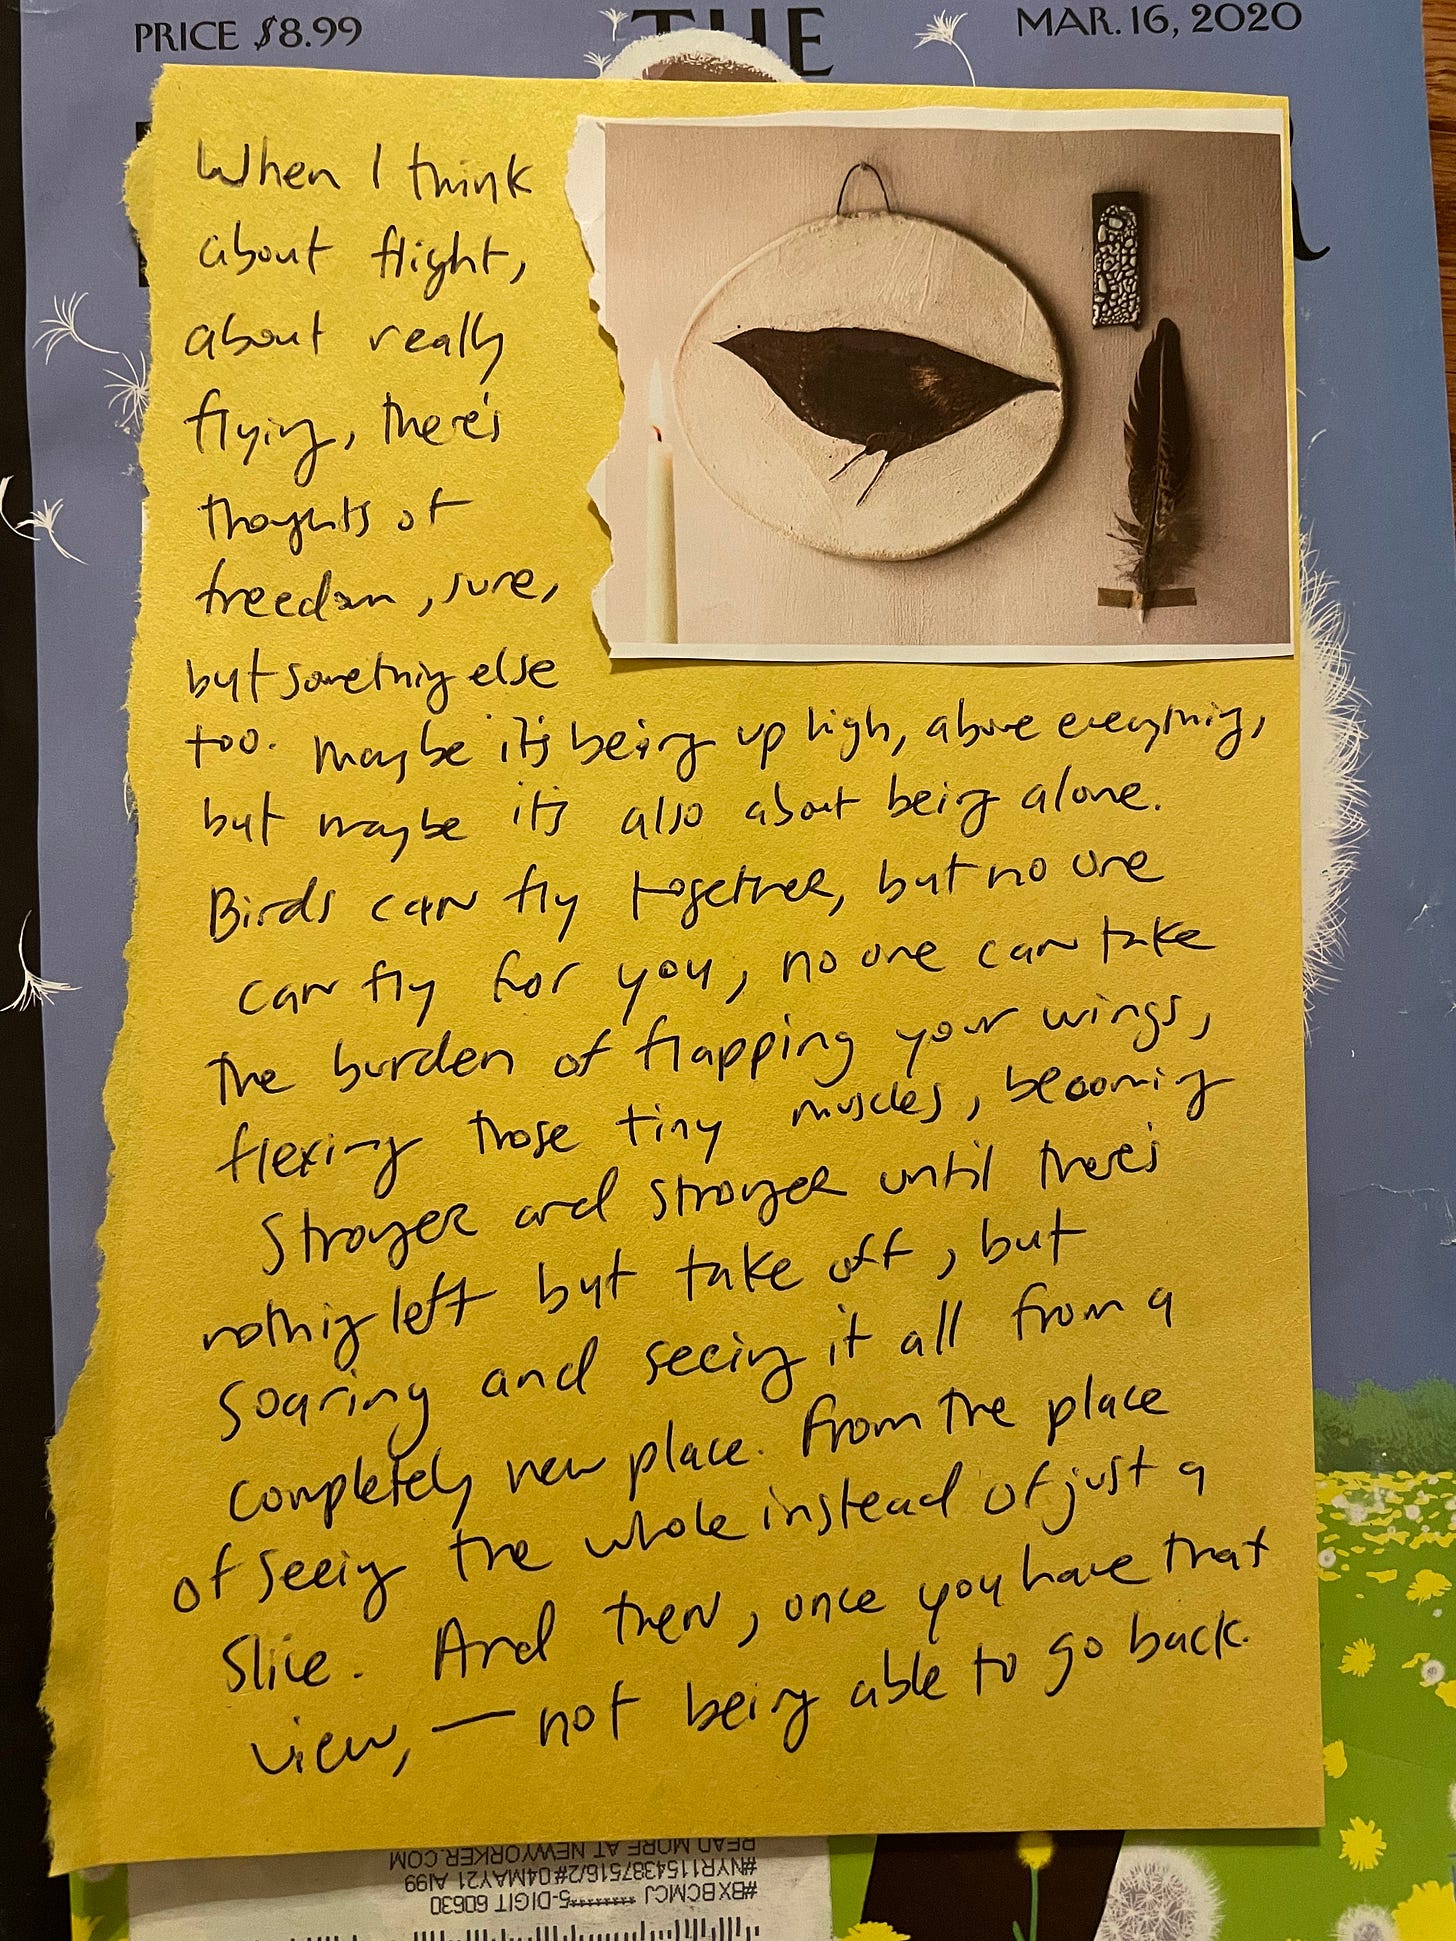 PRICE $8.99
THE
MAR. 16, 2020
When I think
about flight,
about really
flying, there's
thoughts of
freedom, sure,
but something else
too. Maybe it's being up high, above everything,
but maybe it's also about being alone.
Birds can fly together, but no one
can fly for you, no one can take
the burden of flapping your wings,
flexing those tiny muscles, becoming
stronger and stronger until there's
nothing left but take off, but
soaring and seeing it all from a
completely new place. From the place
of seeing the whole instead of just a
slice. And then, once you have that
view, — not being able to go back.
READ MORE AT NEWYORKER.COM
#NYR1154387516/2#04MAY21 AI99
#BXBCMCJ ********5-DIGIT 60630